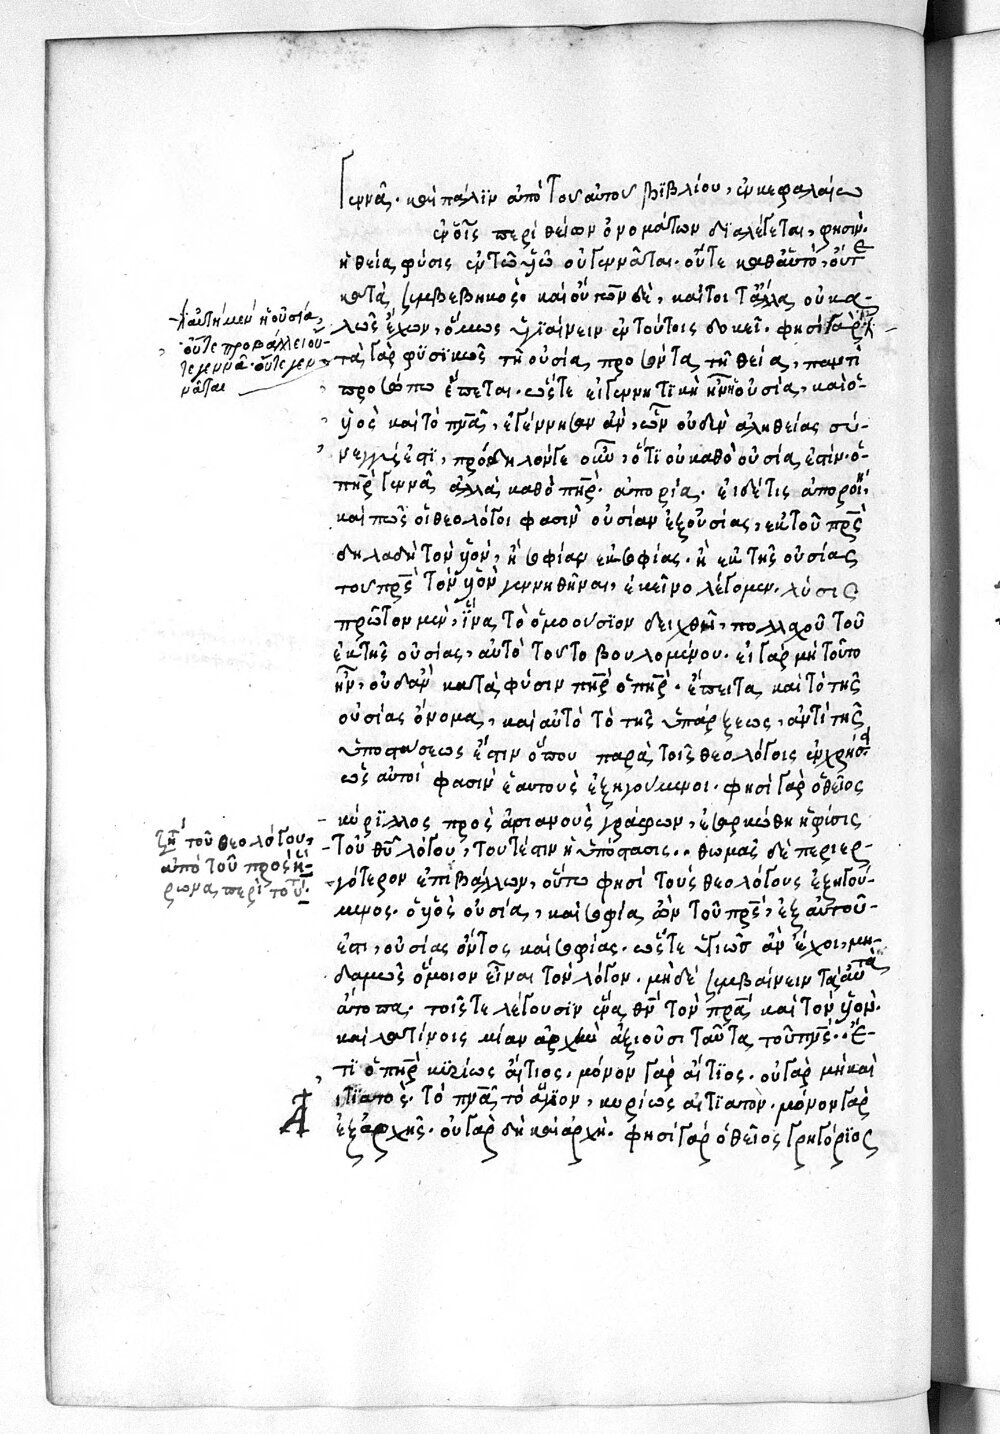 γεννᾶ. καὶ πάλϊν ἀπὸ τοῦ αὐτοῦ βϊβλίου, ἐν κεφαλαίω
ἐν οἷς περὶ θείων ὀνομάτων δϊαλέγεται, φησὶν.
ἡ θεία φύσις ἐν τῶ υἱῶ οὐ γεννᾶται. οὔτε καθ' αὑτὸ, οὔτε
κατὰ συμβεβηκός. καὶ οὔπω δὲ, καίτοι τἄλλα οὐ κα-
λῶς ἔχων, ὅμως ὑγϊαίνειν ἐν τούτοις δοκεῖ. φησὶ γὰρ
τὰ γὰρ φϋσϊκῶς τῆ οὐσία προσόντα τῆ θεία, παντὶ
προσώπω ἕπεται. ὥστε εἰ γεννητϊκὴ ἦν ἡ οὐσία, καὶ ὁ
υἱὸς καὶ τὸ πνᾶ, ἐγέννησεν ἂν, ὧν οὐδὲν ἀληθείας σύ-
νεγγύς ἐστϊ, πρόδηλόν γε οὖν, ὅτϊ οὐ καθὸ οὐσία ἐστὶν ὁ
πηρ γεννᾶ ἀλλὰ καθὸ πηρ. ἀπορία. εἰ δέ τις ἀποροίη,
καὶ πῶς οἱ θεολόγοι φασὶν οὐσίαν ἐξ οὐσίας, ἐκ τοῦ πρς
δηλαδὴ τὸν υἱὸν, ἢ σοφίαν ἐκ σοφίας. ἢ ἐκ τῆς οὐσίας
τοῦ πρς τὸν υἱὸν γεννηθῆναι, ἐκεῖνο λέγομεν. λύσις
πρῶτον μὲν, ἵνα τὸ ὁμοούσϊον δειχθῆ, πολλαχοῦ τοῦ
ἐκ τῆς οὐσίας, αὐτὸ τοῦτο βουλομένου. εἰ γὰρ μὴ τοῦτο
ἦν, οὐδ' ἂν κατὰ φύσιν πηρ ὁ πηρ. ἔπειτα καὶ τὸ τῆς
οὐσίας ὄνομα, καὶ αὐτὸ τὸ τῆς ὑπάρξεως, ἀντὶ τῆς
ὑποστάσεως ἔστιν ὅπου παρὰ τοῖς θεολόγοις ἐν χρήσει
ὡς αὐτοί φασιν ἑαυτοὺς ἐξηγούμενοι. φησὶ γὰρ ὁ θεῖος
κύρϊλλος πρὸς ἀρειανοὺς γράφων, ἐσαρκώθη ἡ φύσις
τοῦ θυ λόγου, τουτέστιν ἡ ὑπόστασις.. θωμᾶς δὲ περιερ-
γότερον ἐπιβάλλων, οὕτω φησὶ τοὺς θεολόγους ἐξηγού-
μενος. ὁ υἱὸς οὐσία, καὶ σοφία ὢν τοῦ πρς, ἐξ αὐτοῦ
ἐστι, οὐσίας ὄντος καὶ σοφίας. ὥστε ὑγιῶς ἂν ἔχοι, μη-
δαμῶς ὅμοιον εἶναι τὸν λόγον. μηδὲ συμβαίνειν ταῦτα
ἄτοπα. τοῖς τε λέγουσϊν ἕνα θν τὸν πρα καὶ τὸν υἱὸν.
καὶ λατίνοις μίαν ἀρχὴν ἀξιοῦσι ταῦτα τοῦ πνς.. ἔ-
τϊ ὁ πηρ κϋρίως αἴτιος. μόνον γὰρ αἴτϊος. οὐ γὰρ μὴ καὶ
αἰτϊατὸς. τὸ πνᾶ τὸ ἅγϊον, κυρίως αἰτϊατὸν. μόνον γὰρ
ἐξ ἀρχῆς. οὐ γὰρ δὴ καὶ ἀρχὴ. φησὶ γὰρ ὁ θεῖος γρηγόρϊος
καὶ αὕτη μὲν ἡ οὐσία,
οὔτε προβάλλει οὔ-
τε γεννᾶ. οὔτε γεν
νᾶται
τοῦ θεολόγου,
ἀπὸ τοῦ πρὸς ἥ-
ρωνα, περὶ τοῦ